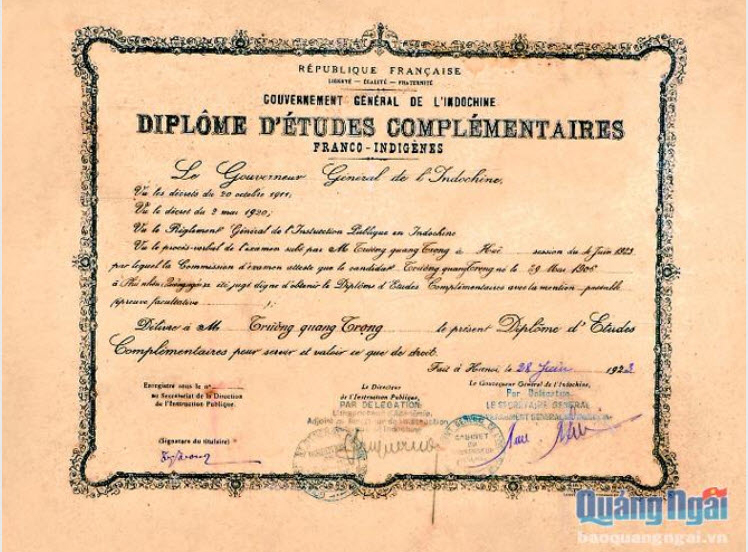 RÉPUBLIQUE FRANÇAISE
LIBERTÉ — ÉGALITÉ — FRATERNITÉ
GOUVERNEMENT GÉNÉRAL DE L'INDOCHINE
DIPLÔME D'ÉTUDES COMPLÉMENTAIRES
FRANCO-INDIGÈNES
Le Gouverneur Général de l'Indochine,
Vu les décrets du 20 octobre 1911;
Vu le décret du 2 mai 1920;
Vu le Règlement Général de l'Instruction Publique en Indochine
Vu le procès-verbal de l'examen subi par M. Trương quang Trọng à Huế session du 4 Juin 1923
par lequel la Commission d'examen atteste que le candidat Trương quang Trọng né le 29 Mai 1906
à Quảng ngãi a été jugé digne d'obtenir le Diplôme d'Etudes Complémentaires avec la mention passable
(épreuve facultative );
Délivre à M Trương quang Trọng le présent Diplôme d'Etudes
Complémentaires pour servir et valoir ce que de droit.
Fait à Hanoi, le 28 Juin 1923
Enregistré sous le n°
au Secrétariat de la Direction
de l'Instruction Publique.
(Signature du titulaire)
Le Directeur
de l'Instruction Publique,
PAR DELEGATION
Le Gouverneur Général de l'Indochine,
Par Délégation
LE SECRÉTAIRE GÉNÉRAL
CABINET
Quảng Ngãi
baoquangngai.vn